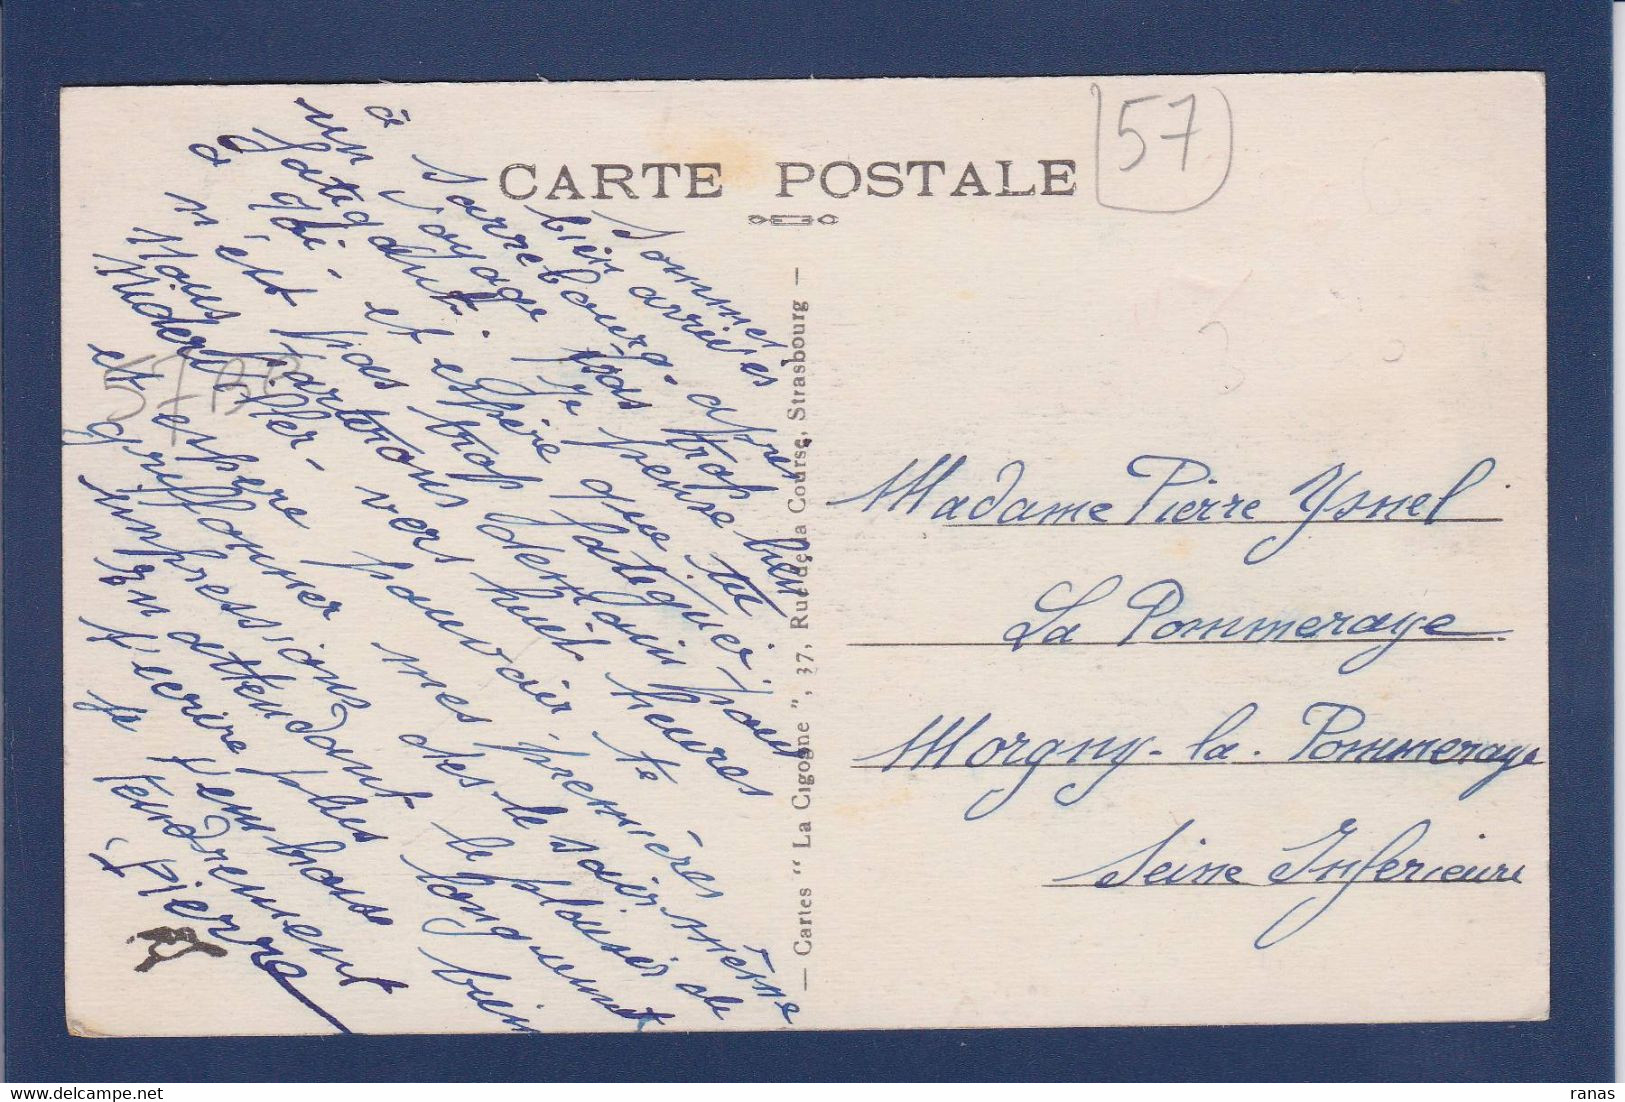 CARTE POSTALE
57
Sommes
bien arrivés
à Sarrebourg. après
un voyage pas trop
fatigant. Je pense bien
qui - et espère que tu
n'est pas trop fatiguée; nous
à
Nous partirons demain
Niderviller - vers huit heures
et espère pouvoir te
griffonner mes premières
impressions dès le soir même
En attendant le plaisir de
t'écrire plus longuement
je t'embrasse bien
tendrement
Pierre
57
— Cartes " La Cigogne ", 37, Rue de la Course, Strasbourg —
Madame Pierre Ysnel
La Pommeraye
Morgny-la-Pommeraye
Seine Inferieure
ranas